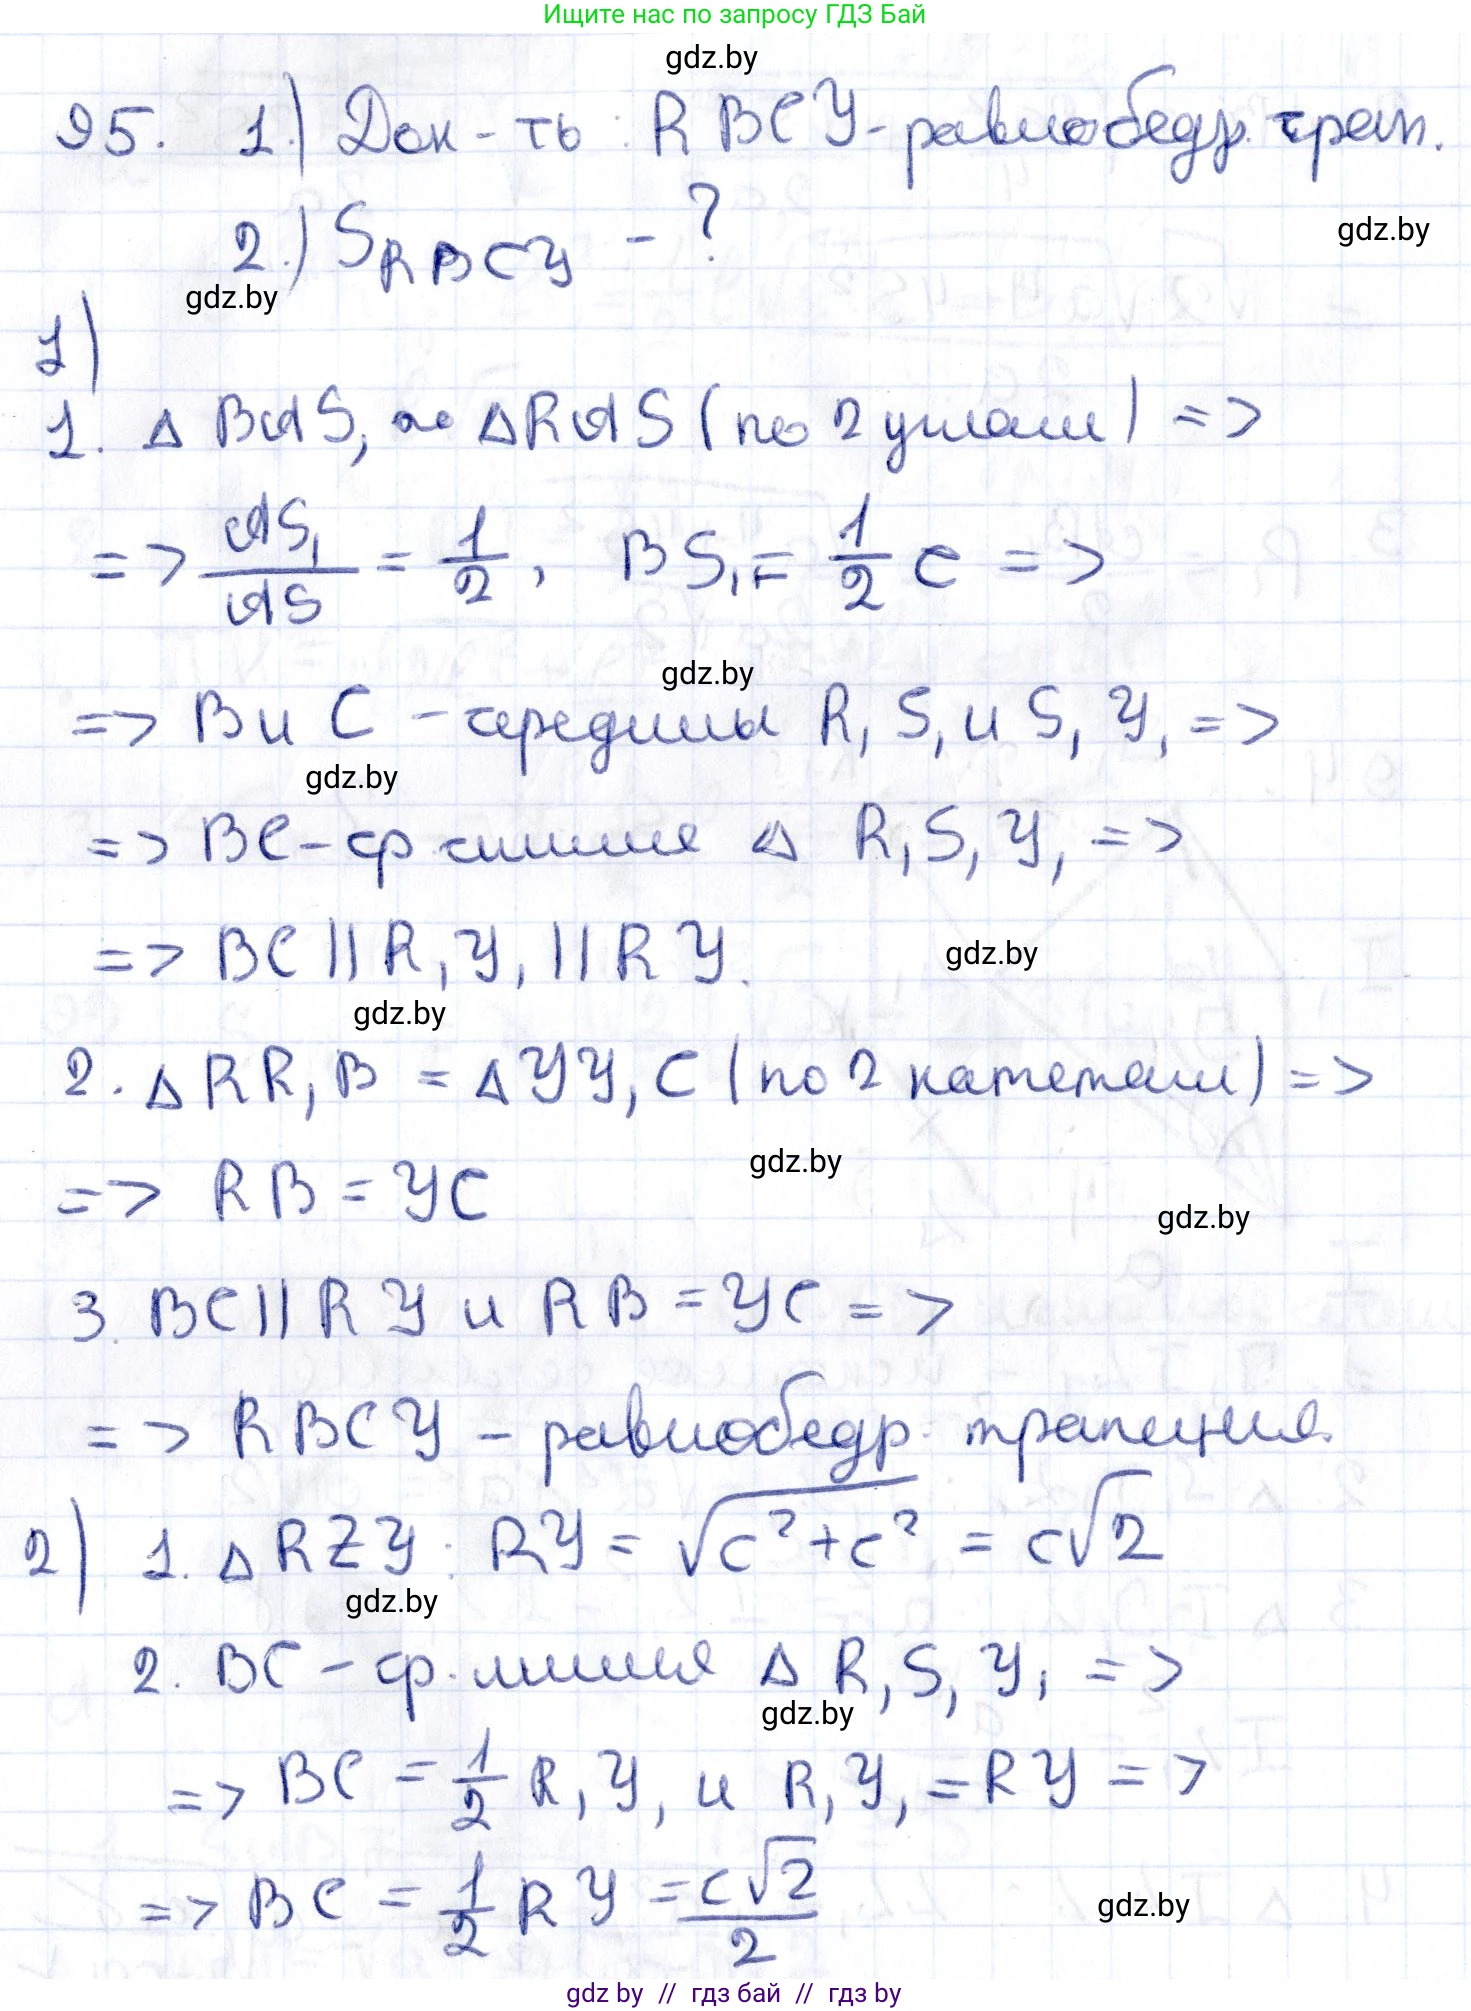 Ищите нас по запросу ГДЗ Бай
gdz.by
95. 1.) Док-ть: RBCY - равнобедр. трап.
gdz.by
2.) S_RBCY - ?
gdz.by
1)
1. △ BAS₁ ∾ △RAS (по 2 углам) =>
=> AS₁/AS = 1/2, BS₁ = 1/2 c =>
gdz.by
=> B и C - середины R₁S₁ и S₁Y₁ =>
gdz.by
=> BC - ср. линия △ R₁S₁Y₁ =>
=> BC || R₁Y₁ || RY.
gdz.by
gdz.by
2. △RR₁B = △YY₁C (по 2 катетам) =>
gdz.by
=> RB = YC
gdz.by
3. BC || RY и RB = YC =>
=> RBCY - равнобедр. трапеция.
2) 1. △RZY: RY = √(c² + c²) = c√2
gdz.by
2. BC - ср. линия △ R₁S₁Y₁ =>
gdz.by
=> BC = 1/2 R₁Y₁ и R₁Y₁ = RY =>
=> BC = 1/2 RY = c√2/2
gdz.by
gdz by // гдз бай // гдз by